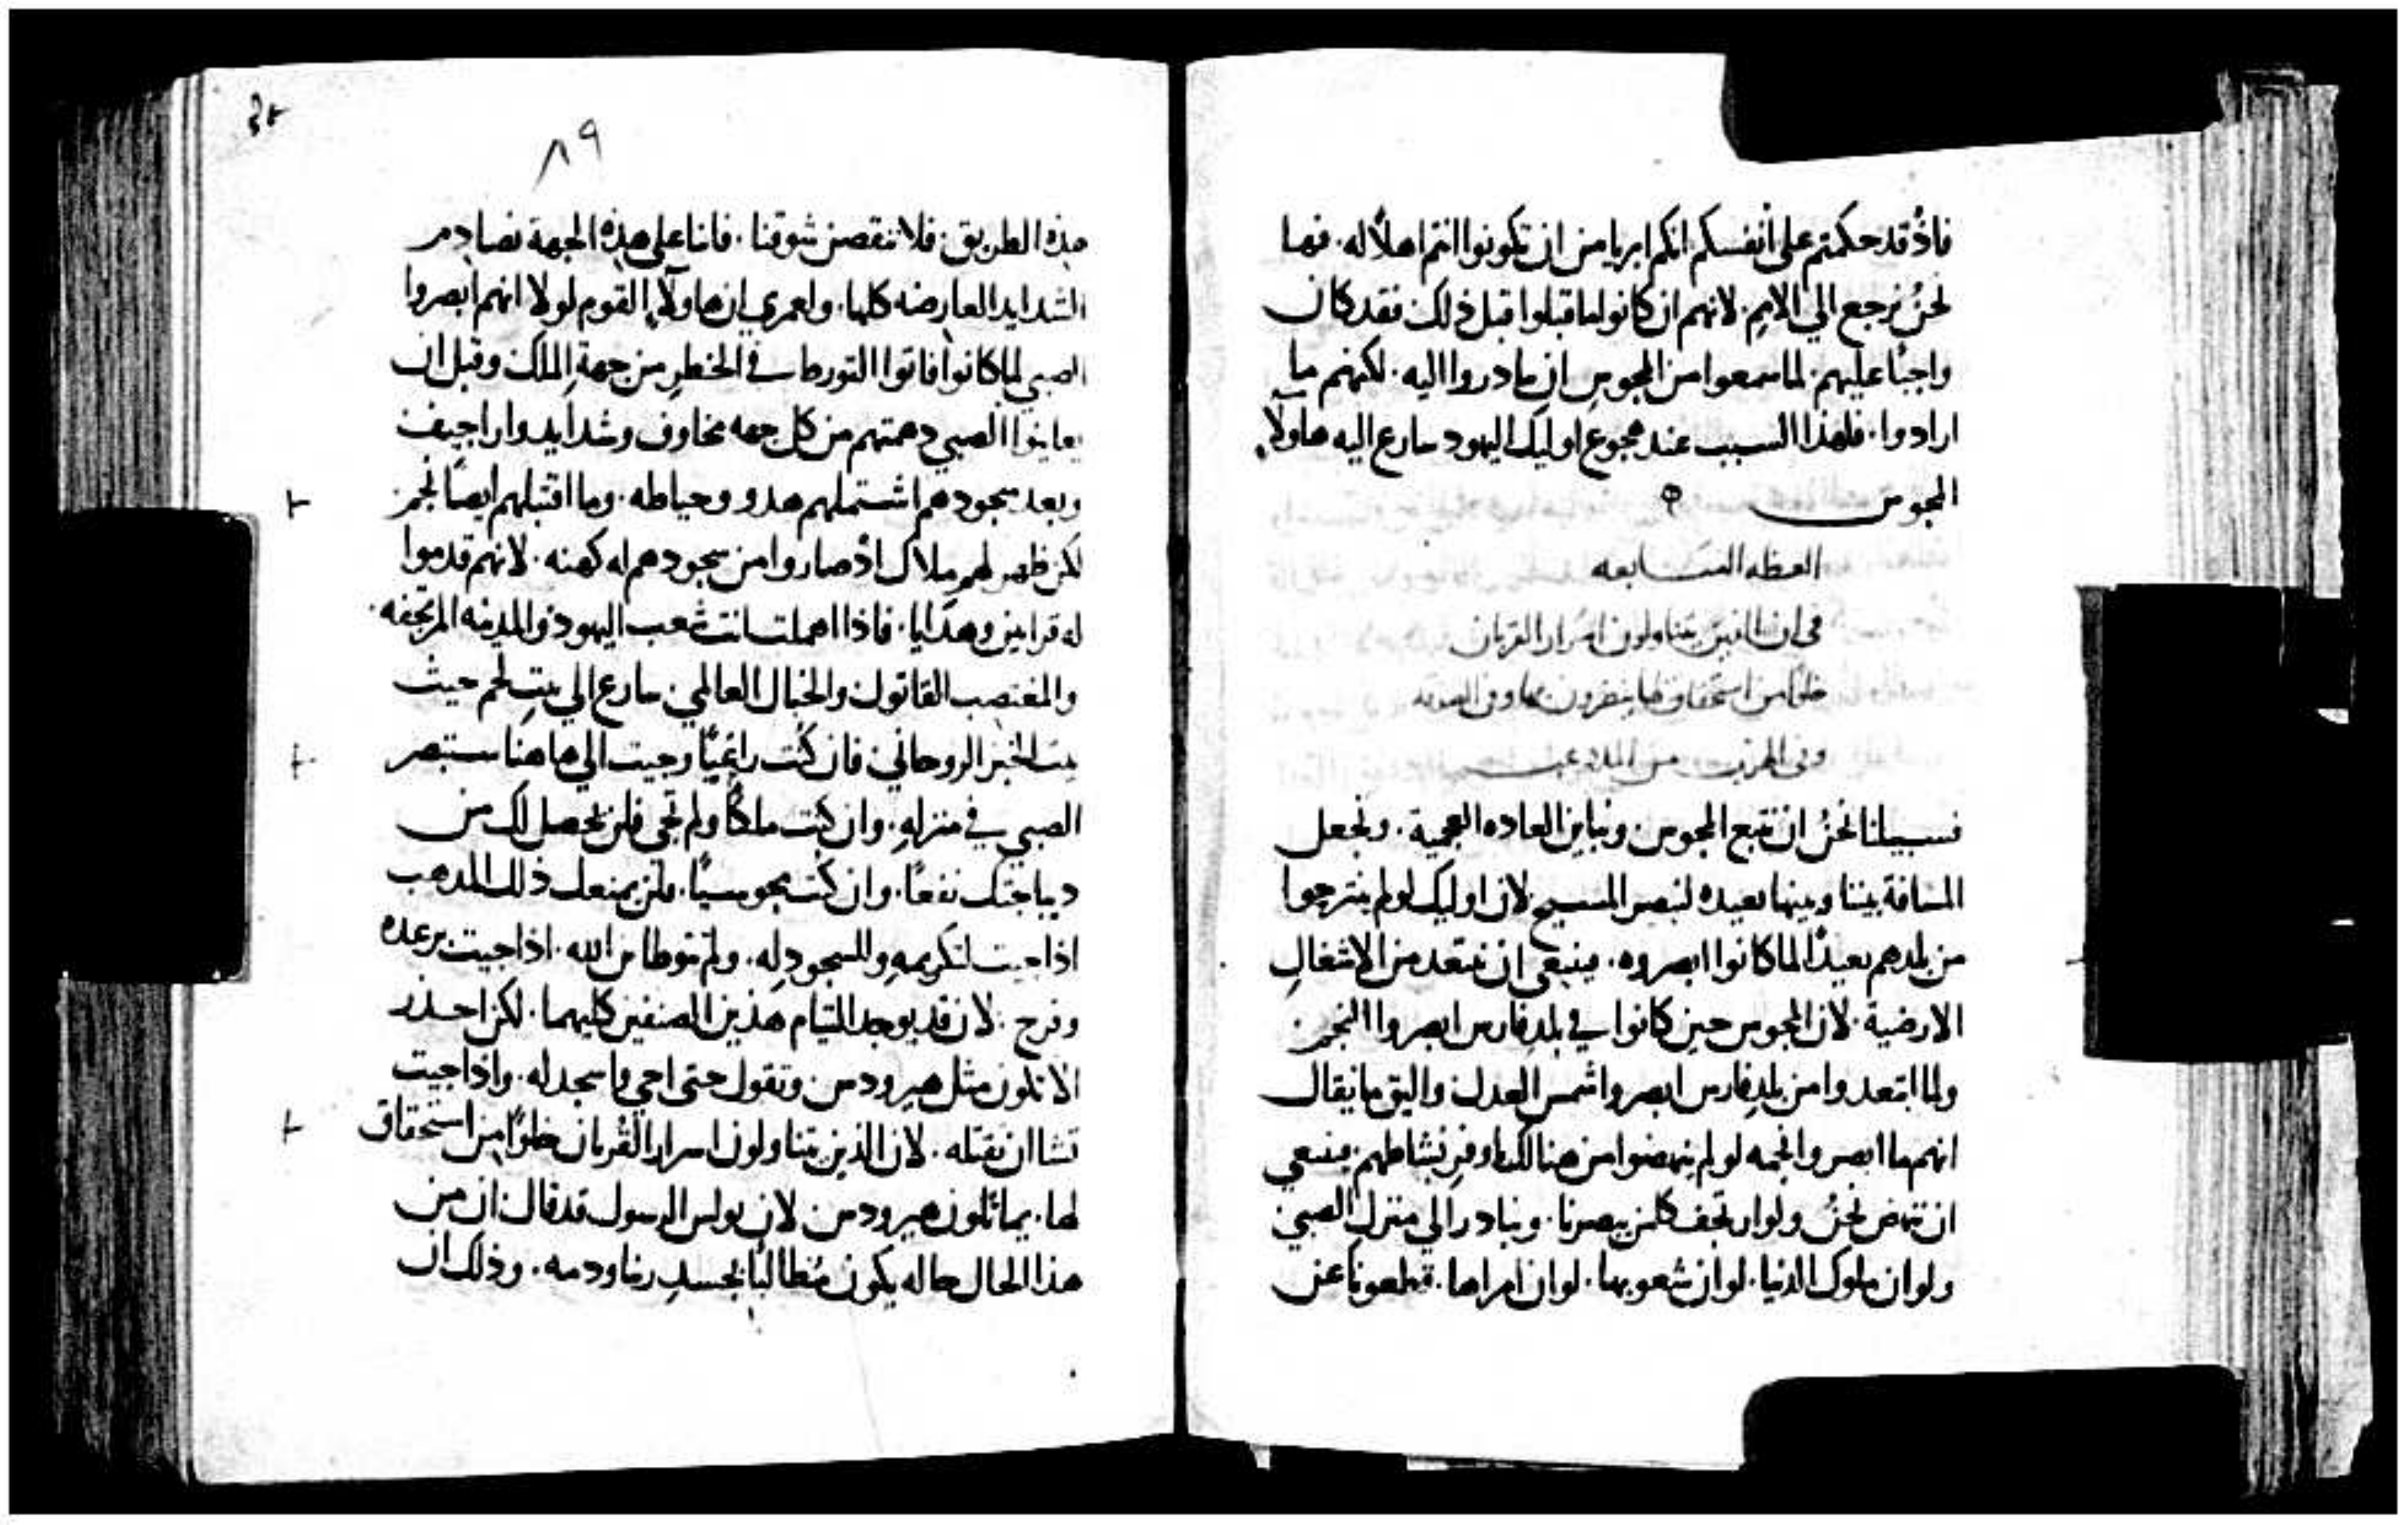 فاذ قد حكمتم على انفسكم انكم ابريا من ان تكونوا انتم اهلاً له. فها
نحنُ نرجع الي الامم. لانهم ان كانوا ما قبلوا قبل ذلك فقد كان
واجبًا عليهم. لما سمعوا من المجوس ان يبادروا اليه. لكنهم ما
ارادوا. فلهذا السبب عند هجوع اوليك اليهود سارع اليه هاولآء
المجوس
العظه السابعه
في ان الذين يتناولون اسرار القربان
خلوًا من استحقاق لها
وفي من الملاعب
فسبيلنا نحنُ ان نتبع المجوس ونباين العاده العجمية. ونجعل
المسافة بيننا وبينها بعيده لنبصر المسيح. لان اوليك لو لم ينترحوا
من بلدهم بعيدًا لما كانوا ابصروه. فينبغي ان نبتعد من الاشغال
الارضية. لان المجوس حين كانوا في بلد فارس ابصروا النجم
ولما ابتعدوا من بلد فارس ابصروا شمس العدل واليق ما يقال
انهم ما ابصروا نجمه لو لم ينهضوا من هنالك باوفر نشاطهم. فينبغي
ان ننهض نحنُ ولو ارتجف كلمن يبصرنا. ونبادر الي منزل الصبي
ولو ان ملوك الدنيا. لو ان شعوبها. لو ان امراها. قطعونا عن
٨٩
هذه الطريق. فلا ننقصن شوقنا. فاننا على هذه الجهة نصادم
الشدايد العارضه كلها. ولعمري ان هاولآء القوم لولا انهم ابصروا
الصبي لما كانوا فاتوا التورط في الخطر من جهة الملك وقبل ان
يعاينوا الصبي دهمتهم من كل جهه مخاوف وشدايد واراجيف
وبعد سجودهم اشتملهم هدو وحياطه. وما اقتبلهم ايضًا نجم
لكن ظهر لهم ملاك اذ صاروا من سجودهم له كهنه. لانهم قدموا
له قرابين وهدايا. فاذا اهملت انت شعب اليهود والمدينه المرتجفه.
والمغتصب القاتول والخبال العالمي. سارع الي بيت لحم حيث
بيت الخبز الروحاني. فان كنت راعيًا وجيت الي هاهنا ستبصر
الصبي في منزله. وان كنت ملكًا ولم تجي فلن يحصل لك من
ديباجتك نفعًا. وان كنت مجوسيًا. فلن يمنعك ذلك المذهب
اذا جيت لتكريمه وللسجود له. ولم توطا بن الله. اذا جيت برعده
وفرح. لان قد يوجد التيام هذين الصنفين كليهما. لكن احذر
الا تكون مثل هيرودس وتقول حتى اجي فاسجد له. واذا جيت
تشا ان تقتله. لان الذين يتناولون اسرار القربان خلوًا من استحقاق
لها. يماثلون هيرودس لان بولس الرسول قد قال ان من
هذا الحال حاله يكون مُطالبًا بجسد ربنا ودمه. وذلك ان